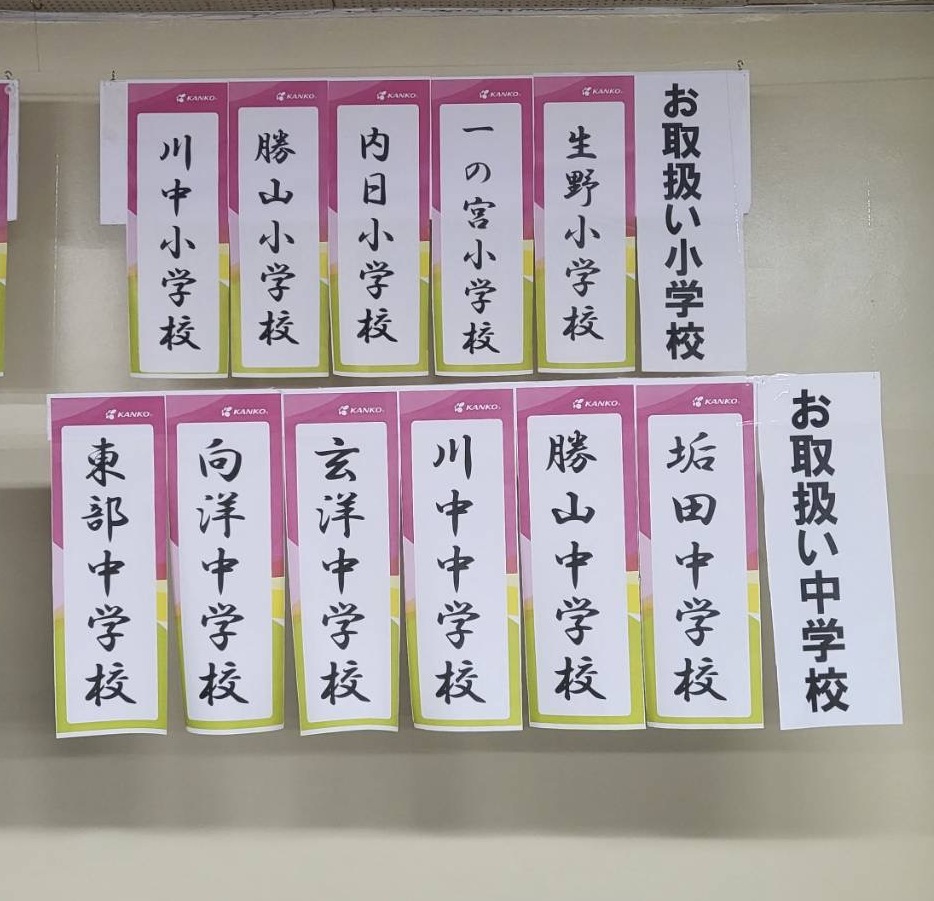 お取扱い小学校
KANKO
生野小学校
KANKO
一の宮小学校
KANKO
内日小学校
KANKO
勝山小学校
KANKO
川中小学校
お取扱い中学校
KANKO
垢田中学校
KANKO
勝山中学校
KANKO
川中中学校
KANKO
玄洋中学校
KANKO
向洋中学校
KANKO
東部中学校